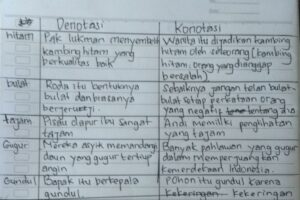 Denotasi Konotasi
hitam Pak lukman menyembelih Wanita itu dijadikan kambing
kambing hitam yang hitam oleh seseorang (kambing
berkualitas baik hitam: orang yang dianggap
bersalah)
bulat Roda itu bentuknya Sebaiknya jangan telan bulat-
bulat dan biasanya bulat setiap perkataan orang
yang negatif tentang
tajam Pisau dapur itu sangat Andi memiliki penglihatan
tajam yang tajam
Gugur Mereka asyik memandang Banyak pahlawan yang gugur
daun yang gugur tertiup dalam memperjuangkan
angin kemerdekaan Indonesia.
Gundul Bapak itu berkepala Pohon itu gundul karena
gundul. kekeringan